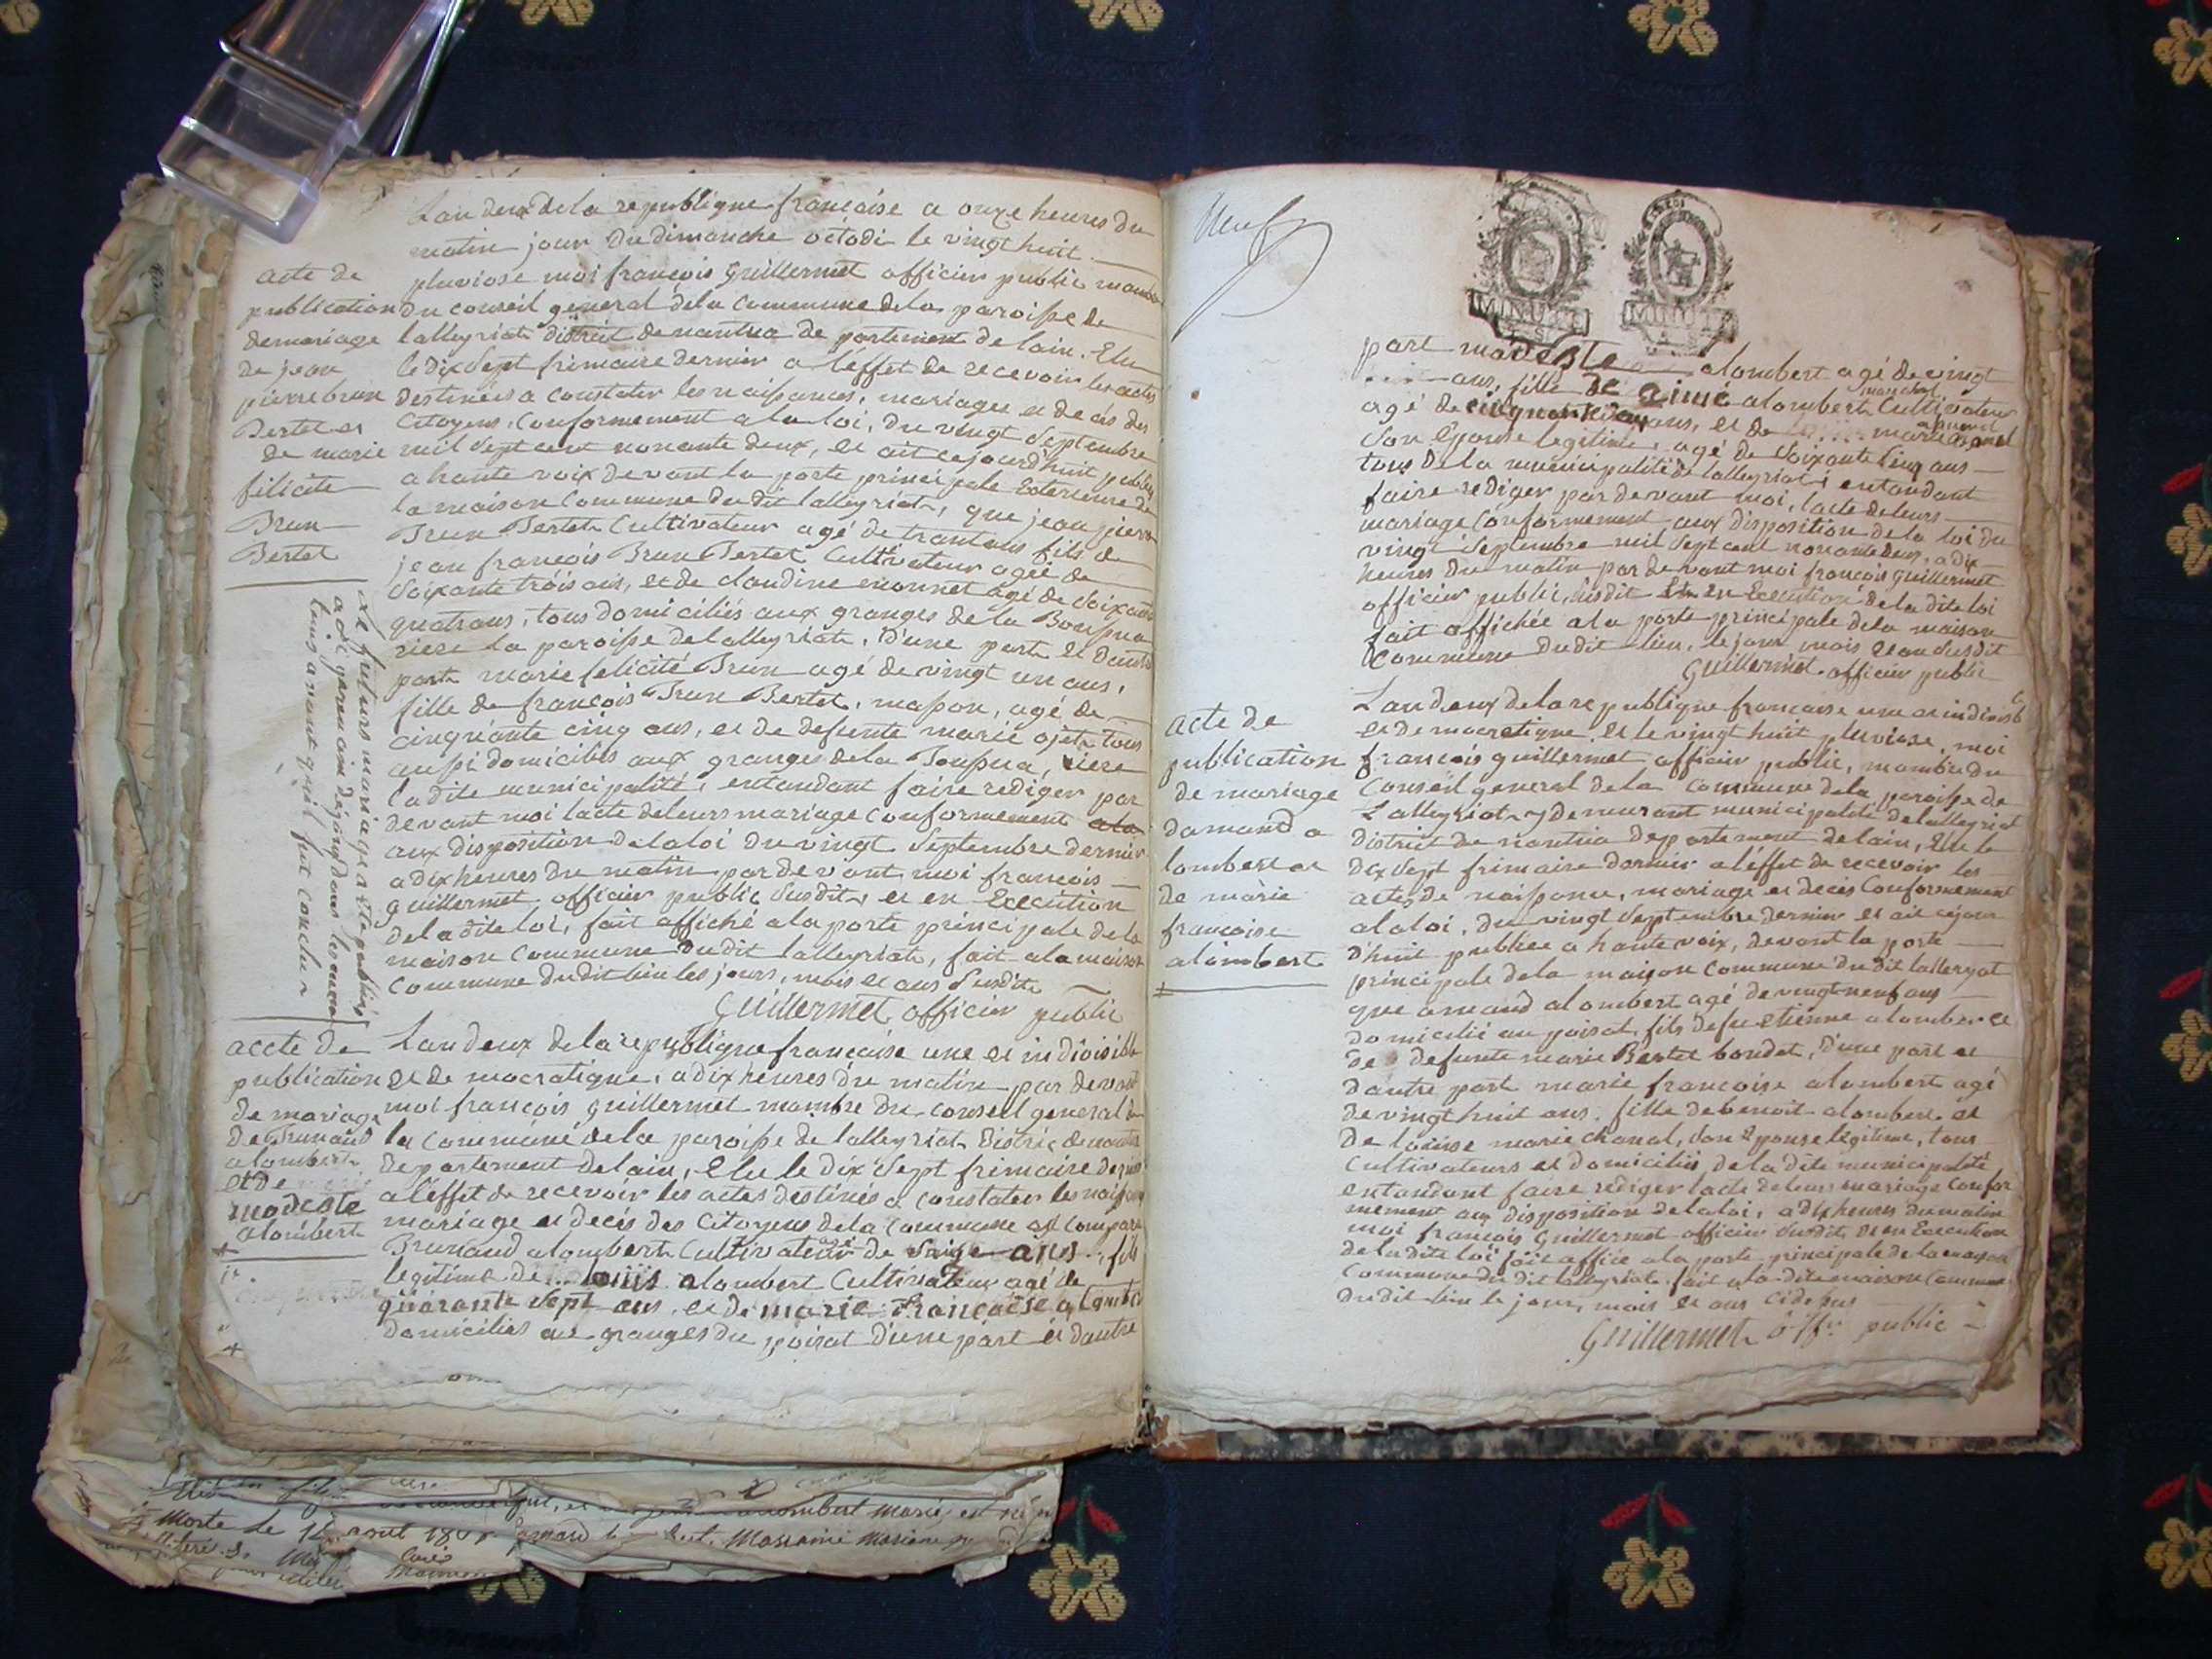 Lan deux dela republique françoise a onze heures du
matin jour du dimanche octodi le vingt huit
pluviose moi françois Guillermet officier public mambre
du conseil general dela commune dela paroisse de
lalleyriat district de nantua de partement de lain. Elu
le dix sept frimaire dernier a l'effet de recevoir les actes
destinés a constater les naissances, mariages et decès des
Citoyens, conformement a la loi, du vingt Septembre
mil sept cent nonante deux, et ait cejourd'huit publiez
a haute voix devant la porte principale Exterieure de
la maison commune du dit lalleyriat, que jean pierre
Brun Bertet Cultivateur agé de trantans fils de
jean françois Brun Bertet Cultivateur agée de
soixante trois ans, et de claudine monnet agé de soixante
quatrans, tous domiciliés aux granges de la
riere la paroisse de lalleyriat, d'une part et dautre
part marie felicité Brun agé de vingt un ans,
fille de françois Brun Bertet, masson, agé de
cinquante cinq ans, et de defunte marie ojet tous
aussi domiciliés aux granges dela riere
ladite municipalité, entandant faire rediger par
devant moi lacte deleurs mariage conformement ala
aux disposition dela loi du vingt Septembre dernier
a dix heures du matin par devant moi françois
guillermet officier public susdit, et en Execution
dela dite loi, fait affiché ala porte principale dela
maison commune dudit lalleyriat, fait ala maison
commune dudit lieu les jours, mois et ans susdit
Guillermet officier public
acte de
publication
de mariage
de jean
pierre brun
Bertet et
de marie
felicite
Brun
Bertet
Le futurs mariage a été publiés
lains avant quil fut conclu
Lan deux dela republique françoise une et indivisible
et democratique, a dix heures du matin par devant
moi françois guillermet mambre du conseil general de
la commune de la paroisse de lalleyriat district denantua
departement delain, Elu le dix sept frimaire dernier
a l'effet de recevoir les actes destinés a constater les naissances
mariage et decès des Citoyens dela commune est comparu
Brunand alombert Cultivateur de ans, fils
legitime de louis alombert Cultivateur agé de
quarante sept ans, et de marie françoise alombert
domiciliés aux granges du poisat d'une part et dautre
accte de
publication
de mariage
de Brunand
alombert
et de
modeste
alombert
Neuf
MINUTE
MINUTE
part modeste alombert agé de vingt
ans, fille de aimé alombert Cultivateur
agé de cinquante ans, et de marie
son Epouse legitime, agé de soixante cinq ans
tous dela municipalité de lalleyriat, entandant
faire rediger par devant moi, lacte deleurs
mariage conformement aux disposition dela loi du
vingt Septembre mil sept cent nonante deux, a dix
heures du matin par devant moi françois guillermet
officier public, susdit Et en Execution de la dite loi
fait affichée ala porte principale dela maison
commune dudit lieu, le jour, mois et an susdit
Guillermet officier public
Lan deux dela republique françoise une et indivisib
et democratique et le vingt huit pluviose, moi
françois guillermet officier public, mambre du
Conseil general dela commune dela paroisse de
Lalleyriat y demeurant municipalité de lalleyriat
district de nantua departement de lain, Elu le
dix sept frimaire dernier a l'effet de recevoir les
actes de naissance, mariage et decès conformement
ala loi, du vingt Septembre dernier et ait cejour
d'huit publiée a haute voix, devant la porte
principale dela maison commune du dit lalleryat
que amand alombert agé de vingt neuf ans
domicilié au poisat, fils defu etienne alombert et
de defunte marie Bertet boudet, d'une part et
dautre part marie françoise alombert agé
de vingt huit ans. fille de benoit alombert et
de louise marie chanal, son Epouse legitime, tous
cultivateurs et domiciliés dela dite municipalité
entandant faire rediger lacte deleurs mariage confor
mement aux disposition dela loi, a dix heures du matin
moi françois guillermet officier susdit, et en Execution
dela dite loi fait affiée ala porte principale de la maison
commune du dit lalleyriat. fait ala dite maison commune
dudit lieu le jour, mois et ans cidessus
Guillermet offr public
acte de
publication
de mariage
damand a
lombert et
de marie
françoise
alombert
Morte le